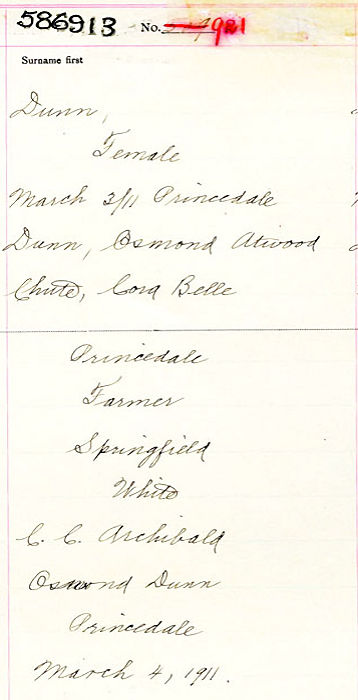 586913 No. 921
Surname first
Dunn,
Female
March 3/11 Princedale
Dunn, Osmond Atwood
Chute, Cora Belle
Princedale
Farmer
Springfield
White
C. C. Archibald
Osmond Dunn
Princedale
March 4, 1911.